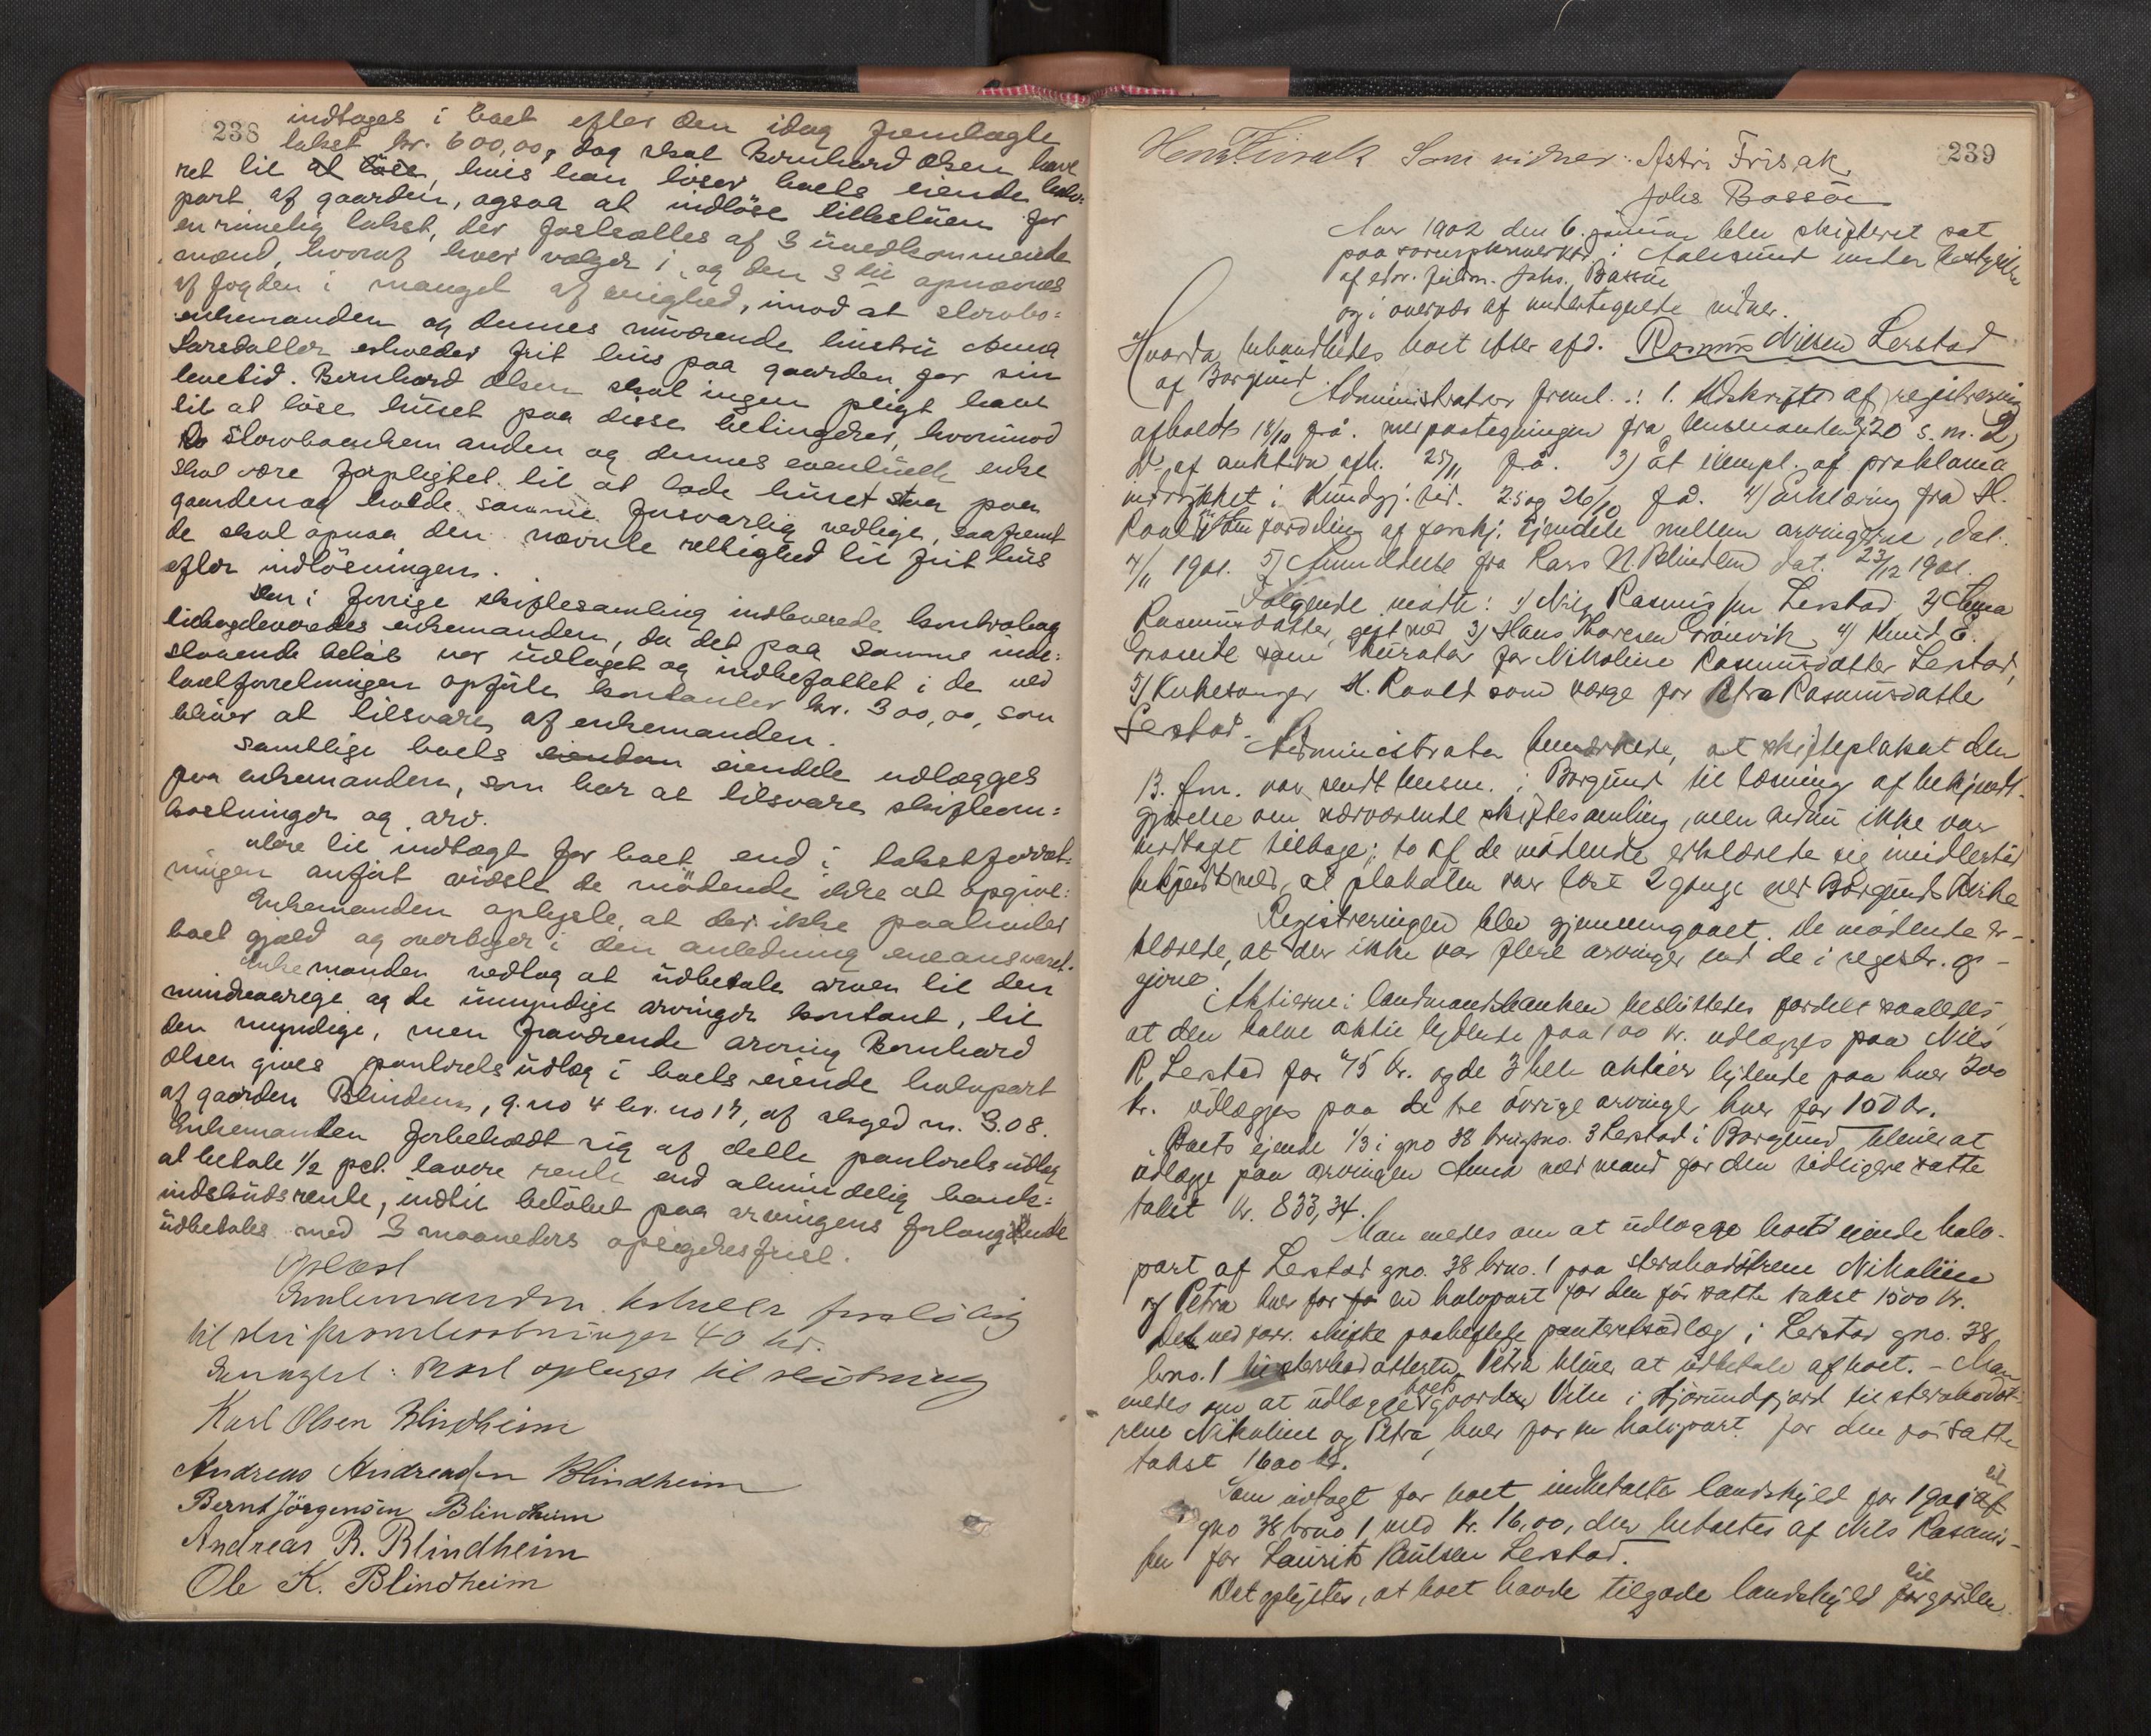 238
indtages i boet efter den idag fremlagte
takst kr. 600,00, dog skal Bernhard Olsen have
ret til at løse, hvis han løser boets eiende halv-
part af gaarden, ogsaa at indløse lillestuen for
en rimelig takst, der fastsættes af 3 uvedkommende
mænd, hvoraf hver vælger 1, og den 3die opnævnes
af fogden i mangel af enighed, imod at stervbo-
enkemanden og dennes nuværende hustru Anna
Larsdatter erholder frit hus paa gaarden for sin
levetid. Bernhard Olsen skal ingen pligt have
til at løse huset paa disse betingelser, hvorimod
stervboenkemanden og dennes eventuelle enke
skal være forpligtet til at lade huset staa paa
gaarden og holde samme forsvarlig vedlige, saafremt
de skal opnaa den nævnte rettighed til frit hus
efter indløsningen.
Den i forrige skiftesamling indleverede kontrabog
tilbageleveredes enkemanden, da det paa samme inde-
staaende beløb var udtaget og indbefattet i de ved
taxtforretningen opførte kontanter kr. 300,00, som
bliver at tilsvare af enkemanden.
Samtlige boets eiendele udlægges
paa enkemanden, som har at tilsvare skifteom-
kostninger og arv.
Mere til indtægt for boet end i takstforret-
ningen anført vidste de mødende ikke at opgive.
Enkemanden oplyste, at der ikke paahviler
boet gjæld og overtager i den anledning eneansvaret.
Enkemanden vedtog at udbetale arven til den
mindreaarige og de umyndige arvinger kontant, til
den myndige, men fraværende arving Bernhard
Olsen gives panterets udlæg i boets eiende halvpart
af gaarden Blindheim, g.no 4 br.no 17, af skyld m. 3.08.
Enkemanden forbeholdt sig af dette panteretsudlæg
at betale 1/2 pct. lavere rente end almindelig bank-
indskudsrente, indtil beløbet paa arvingens forlangende
udbetales med 3 maaneders opsigelsesfrist.
Oplæst
Enkemanden betaler foreløbig
til skifteomkostninger 40 kr.
Eragtet: Boet optages til slutning
Karl Olsen Blindheim
Andreas Andreassen Blindheim
Bernt Jörgensen Blindheim
Andreas B. Blindheim
Ole K. Blindheim
239
Som vidner: Astri Frisak
Johs Bassøe
Aar 1902 den 6. januar blev skifteret sat
paa sorenskriverkt. i Aalesund under bestyrelse
af edsv. fuldm. Johs. Bassøe
og i overvær af undertegnede vidner.
Hvorda behandledes boet efter afd. Rasmus Nilsen Lerstad
af Borgund.
Administrator freml.: 1. Udskrift af registrering
afholdt 18/10 f.å. med paategningen fra lensmanden 20 s.m. 2)
do af auktion afh. 25/11 f.å. 3) et exempl. af proklama
indrykket i Kundgj. tid. 25 og 26/10 f.å. 4) Erklæring fra H.
Roald om fordeling af forskj. ejendele mellem arvingerne, dat.
4/11 1901. 5) Anmeldelse fra Lars N. Blindheim dat. 23/12 1901.
Følgende mødte: 1) Nils Rasmussen Lerstad 2) Anna
Rasmusdatter, gift med 3) Hans Thoresen Grønvik, 4) Knud E.
som kurator for Nikoline Rasmusdatter Lerstad,
5) Kirkesanger H. Roald som værge for Petra Rasmusdatter
Lerstad.
Administrator bemærkede, at skifteplakat den
13. f.m. var sendt lensm. i Borgund til læsning af bekjendt-
gjørelse om nærværende skiftesamling, men endnu ikke var
modtaget tilbage; to af de mødende erklærede sig imidlertid
bekjendt med, at plakaten var læst 2 gange ved Borgunds Kirke
Registreringen blev gjennemgaaet. De mødende er-
klærede, at der ikke var flere arvinger end de i registr. op-
givne.
Aktierne i landmandsbanken besluttedes fordelt saaledes,
at den halve aktie lydende paa 100 kr. udlægges paa Nils
R. Lerstad for 75 kr. og de 3 hele aktier lydende paa hver 200
kr. udlægges paa de tre øvrige arvinge hver for 150 kr.
Boets ejende 1/3 i gno 38 brugsno. 3 Lerstad i Borgund bliver at
udlægge paa arvingen Anna med mand for den tidligere satte
takst kr. 833,34.
Man enedes om at udlægge boets ejende halv-
part af Lerstad gno. 38 brno. 1 paa stervbodøtrene Nikoline
og Petra hver for en halvpart for den før satte takst 1500 kr.
Det ved forr. skifte paaheftede panteretsudlæg i Lerstad gno. 38
brno. 1 til stervbodatteren Petra bliver at udbetale af boet. - Man
enedes om at udlægge boets gaarden Viln i Hjørundfjord til stervbodøt-
rene Nikoline og Petra, hver for en halvpart for den før satte
takst 1600 kr.
Som indtægt for boet indbetaltes landskyld for 1901 til
gno 38 brno 1 med kr. 16,00, der betaltes af Nils Rasmus-
sen for Laurits Paulsen Lerstad.
Det oplystes, at boet havde tilgode landskyld til forgården